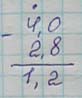 - 4,0
2,8
1,2